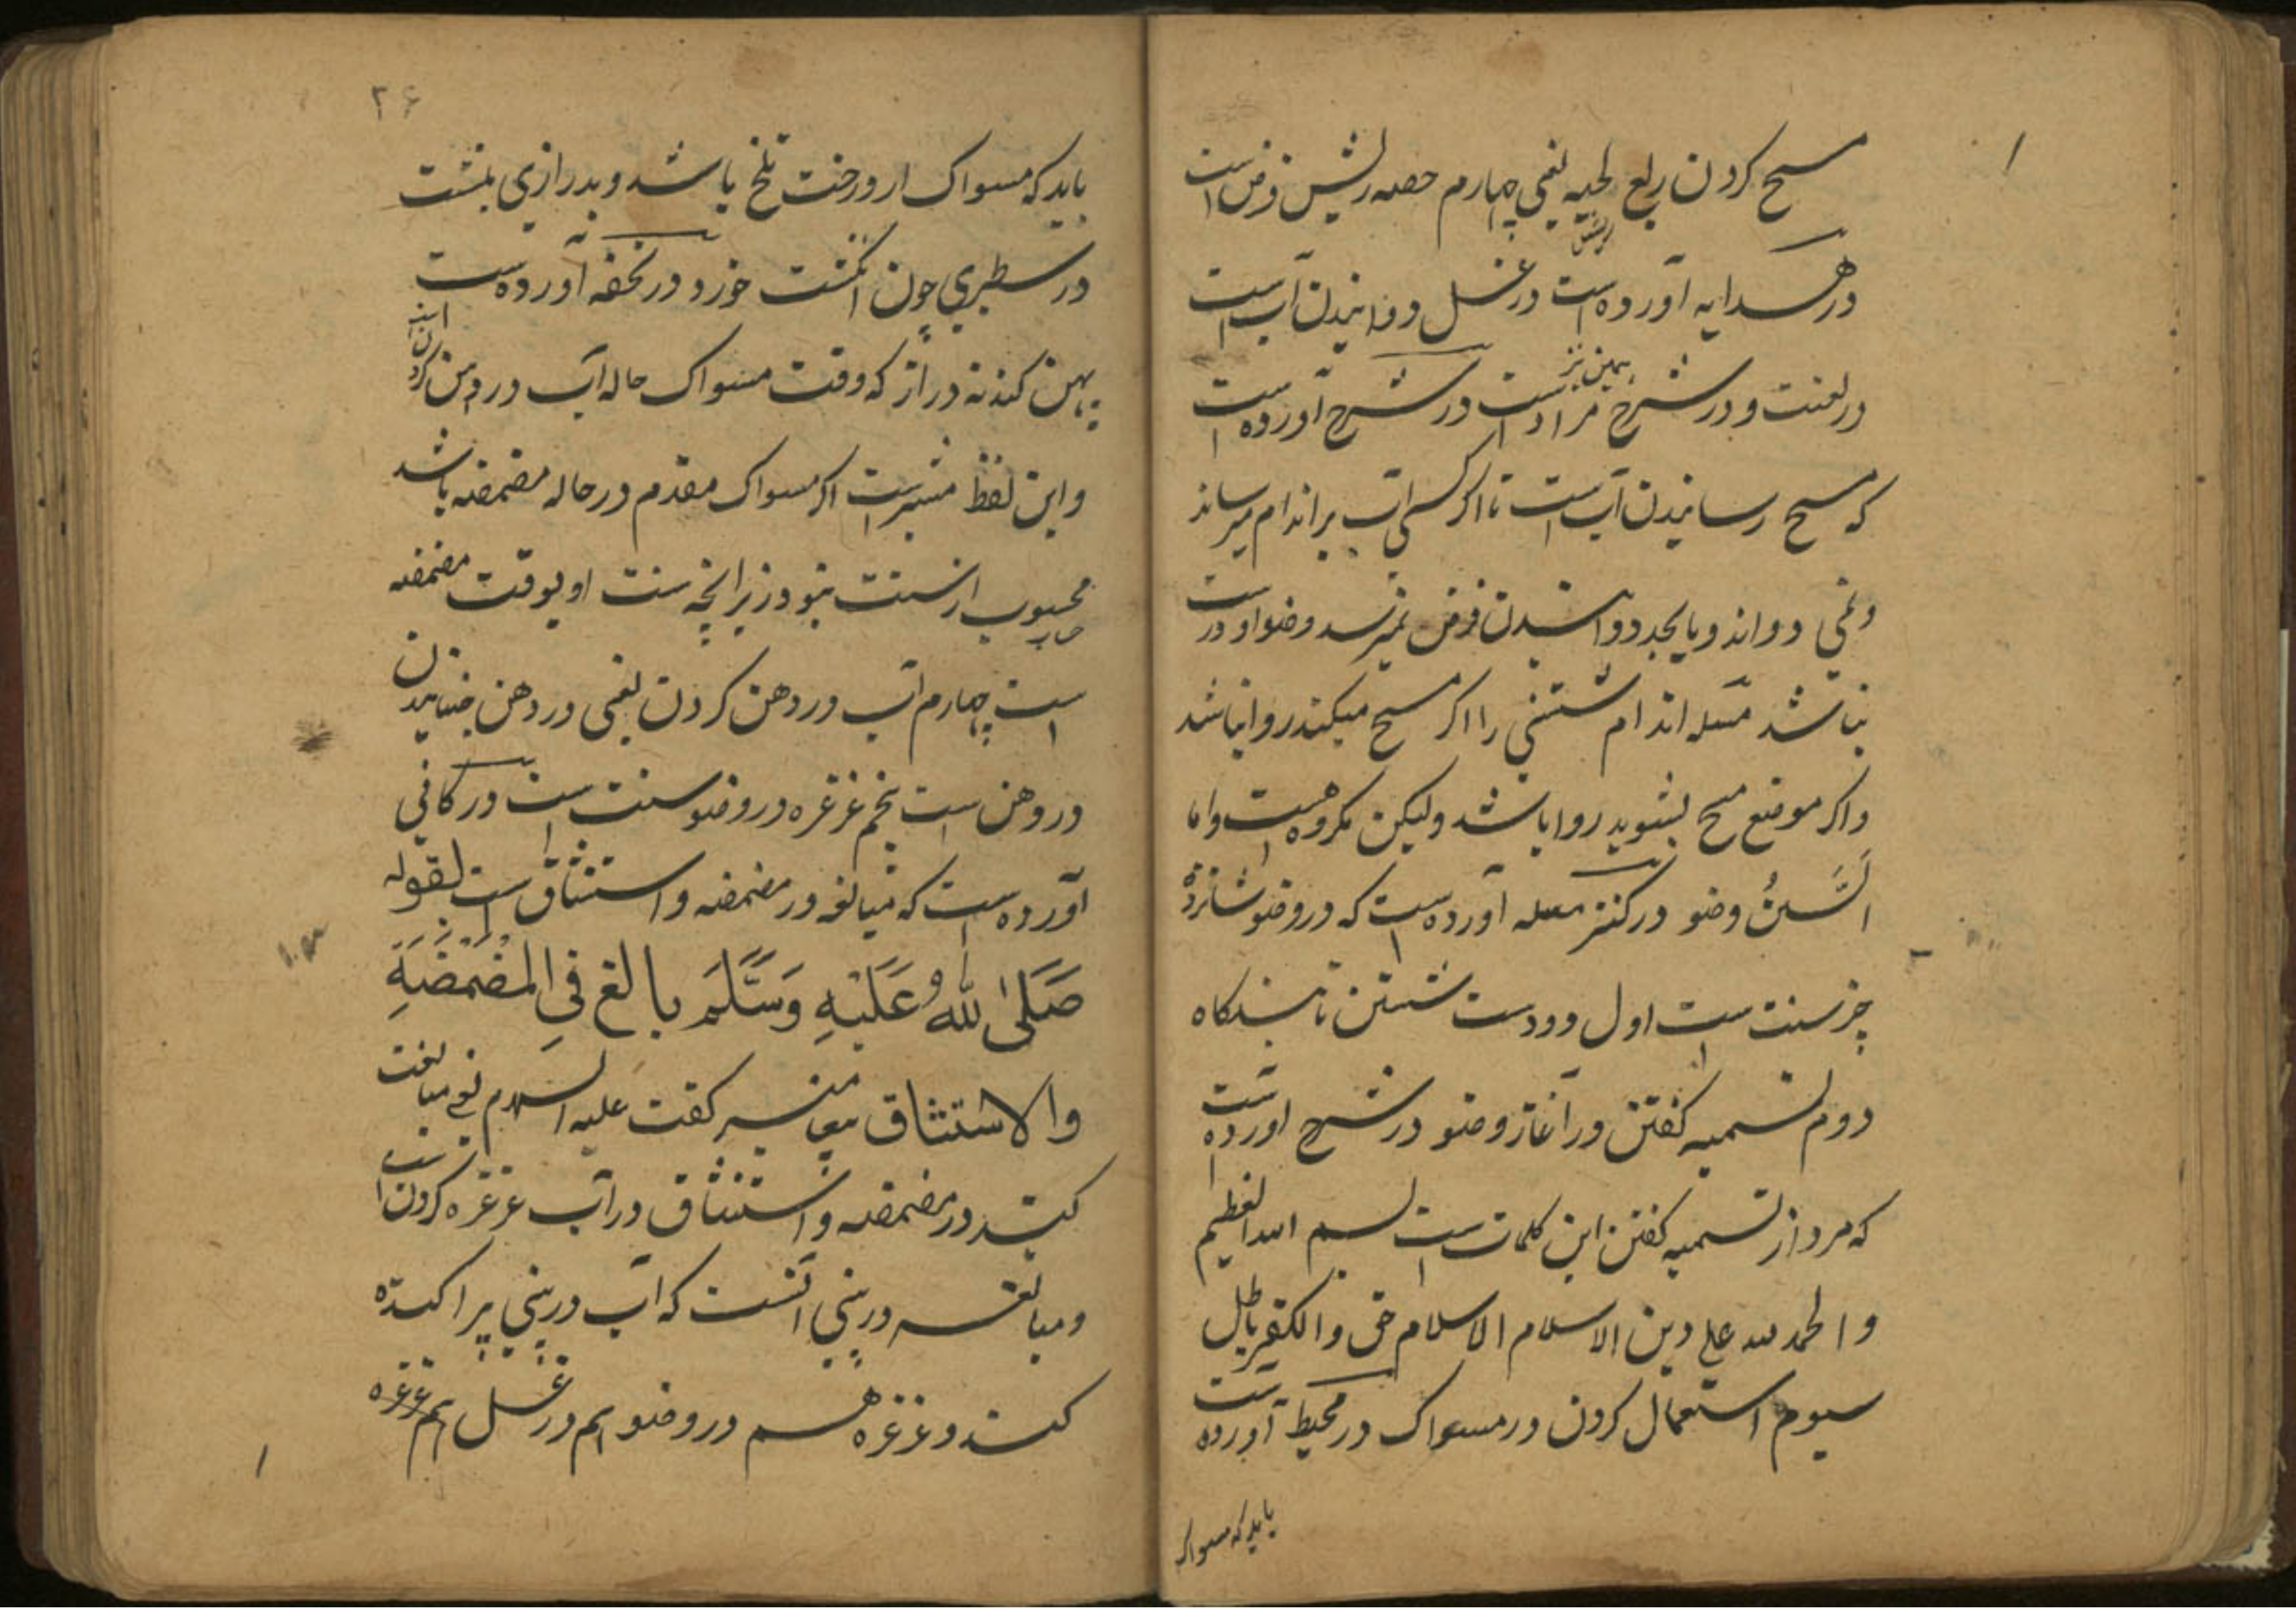 مسح کردن ربع لحیه یعنی چهارم حصه ریش فرض است
در هدایه آورده است در غسل ریش و دوانیدن آب است
در لغت و در شرع همین نیز مراد است در شرح آورده است
که مسح رسانیدن آب است تا اکر کسی آب بر اندام میرساند
و نمی دواند و بایجد دوانیدن فرض نمیرسد وضو او درست
نباشد مسله اندام شستنی را اکر مسح میکند روا نباشد
واکر موضع مسح بشوید روا باشد ولیکن مکروه است واما
السنن وضو در کنز مسله آورده است که در وضو شانزده
چیز سنت است اول دو دست شستن تا بندکاه
دوم تسمیه کفتن در آغاز وضو در شرح اورده است
که مرد از تسمیه کفتن این کلمات است بسم الله العظیم
والحمد لله علی دین الاسلام الاسلام حق والکفر باطل
سیوم استعمال کردن در مسواک در محیط آورده است
باید که مسواک
۲۶
باید که مسواک از درخت تلخ باشد و بدرازی بلشت
در سطبری چون انکشت خورد در تحفه آورده است
پهن کند نه دراز که وقت مسواک حاله آب در دهن کردن است
واین لفظ مشیر است اکر مسواک مقدم در حاله مضمضه باشد
محبوب از سنت نبود زیرانچه سنت او بوقت مضمضه
است چهارم آب در دهن کردن یعنی در دهن جنبانیدن
در دهن است پنجم غرغره در وضو سنت است در کافی
آورده است که مبالغه در مضمضه واستنثاق است لقوله
صَلَی اللهُ عَلَیْهِ وَسَلَّمَ بالغ فی المَضْمَضَةِ
والاستنثاق پیغامبر کفت علیه السلام یعنی مبالغت
کنید در مضمضه واستنثاق در آب غرغره کردن است
ومبالغه در بینی آنست که آب در بینی پراکنده
کند و غرغره هم در وضو هم در غسل هم غرغره